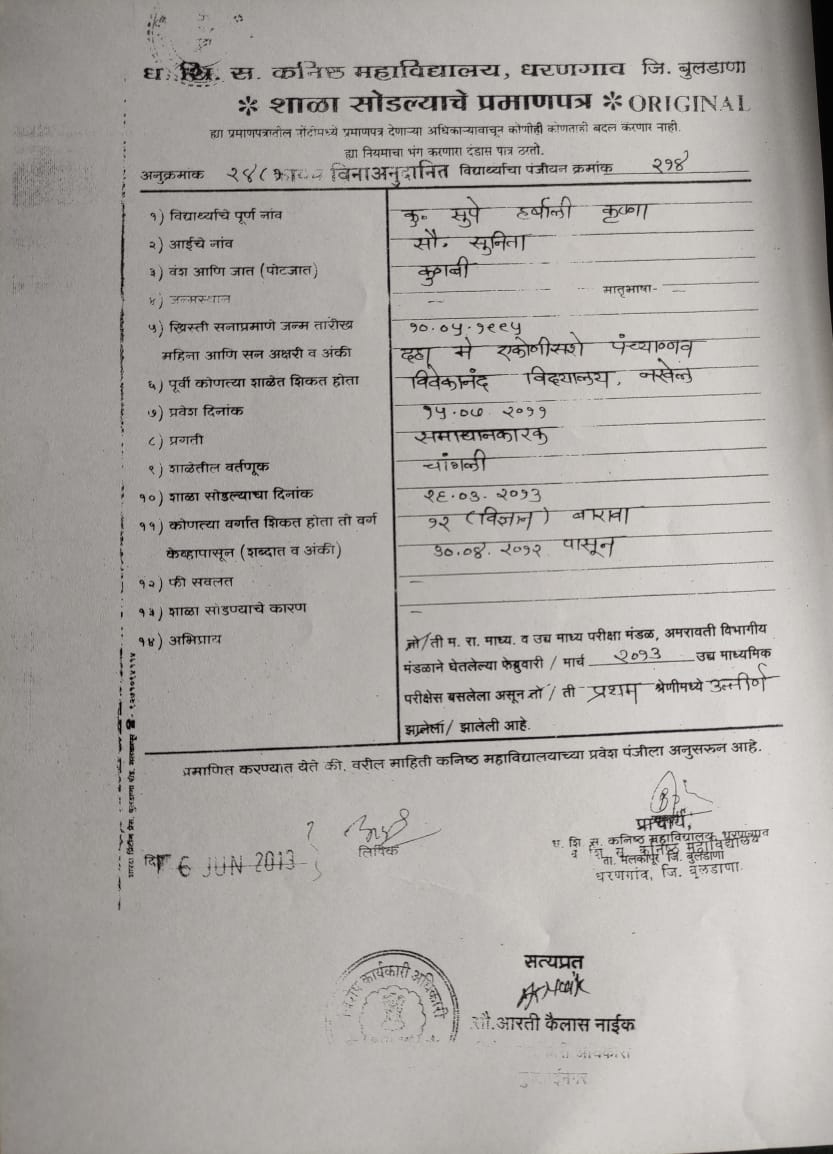 ध. शि. स. कनिष्ठ महाविद्यालय, धरणगाव जि. बुलडाणा
* शाळा सोडल्याचे प्रमाणपत्र * ORIGINAL
ह्या प्रमाणपत्रातील नोंदीमध्ये प्रमाणपत्र देणाऱ्या अधिकाऱ्यावाचून कोणीही कोणताही बदल करणार नाही.
ह्या नियमाचा भंग करणारा दंडास पात्र ठरतो.
अनुक्रमांक २४८ कायम विनाअनुदानित विद्यार्थ्याचा पंजीयन क्रमांक २१४
१) विद्यार्थ्याचे पूर्ण नांव कु. सुपे हर्षाली कृष्णा
२) आईचे नांव सौ. सुनिता
३) वंश आणि जात (पोटजात) कुणबी
४) जन्मस्थान – मातृभाषा- —
५) ख्रिस्ती सनाप्रमाणे जन्म तारीख १०.०५.१९९५
महिना आणि सन अक्षरी व अंकी दहा मे एकोणीसशे पंच्याण्णव
६) पूर्वी कोणत्या शाळेत शिकत होता विवेकानंद विद्यालय,
७) प्रवेश दिनांक १५.०७.२०११
८) प्रगती समाधानकारक
९) शाळेतील वर्तणूक चांगली
१०) शाळा सोडल्याचा दिनांक २६.०३.२०१३
११) कोणत्या वर्गात शिकत होता तो वर्ग १२ (विज्ञान) बारावा
केव्हापासून (शब्दात व अंकी) ३०.०४.२०१२ पासून
१२) फी सवलत –
१३) शाळा सोडण्याचे कारण –
१४) अभिप्राय तो/ती म. रा. माध्य. व उच्च माध्य परीक्षा मंडळ, अमरावती विभागीय
मंडळाने घेतलेल्या फेब्रुवारी / मार्च २०१३ उच्च माध्यमिक
परीक्षेस बसलेला असून तो / ती प्रथम श्रेणीमध्ये उत्तीर्ण
झालेला/ झालेली आहे.
प्रमाणित करण्यात येते की, वरील माहिती कनिष्ठ महाविद्यालयाच्या प्रवेश पंजीला अनुसरून आहे.
प्राचार्य,
लिपिक
ध. शि. स. कनिष्ठ महाविद्यालय धरणगाव
ध. शि. स. कनिष्ठ महाविद्यालय
ता. मलकापूर जि. बुलडाणा
धरणगांव, जि. बुलडाणा.
दि. 6 JUN 2013
सत्यप्रत
विशेष कार्यकारी अधिकारी
सौ. आरती कैलास नाईक